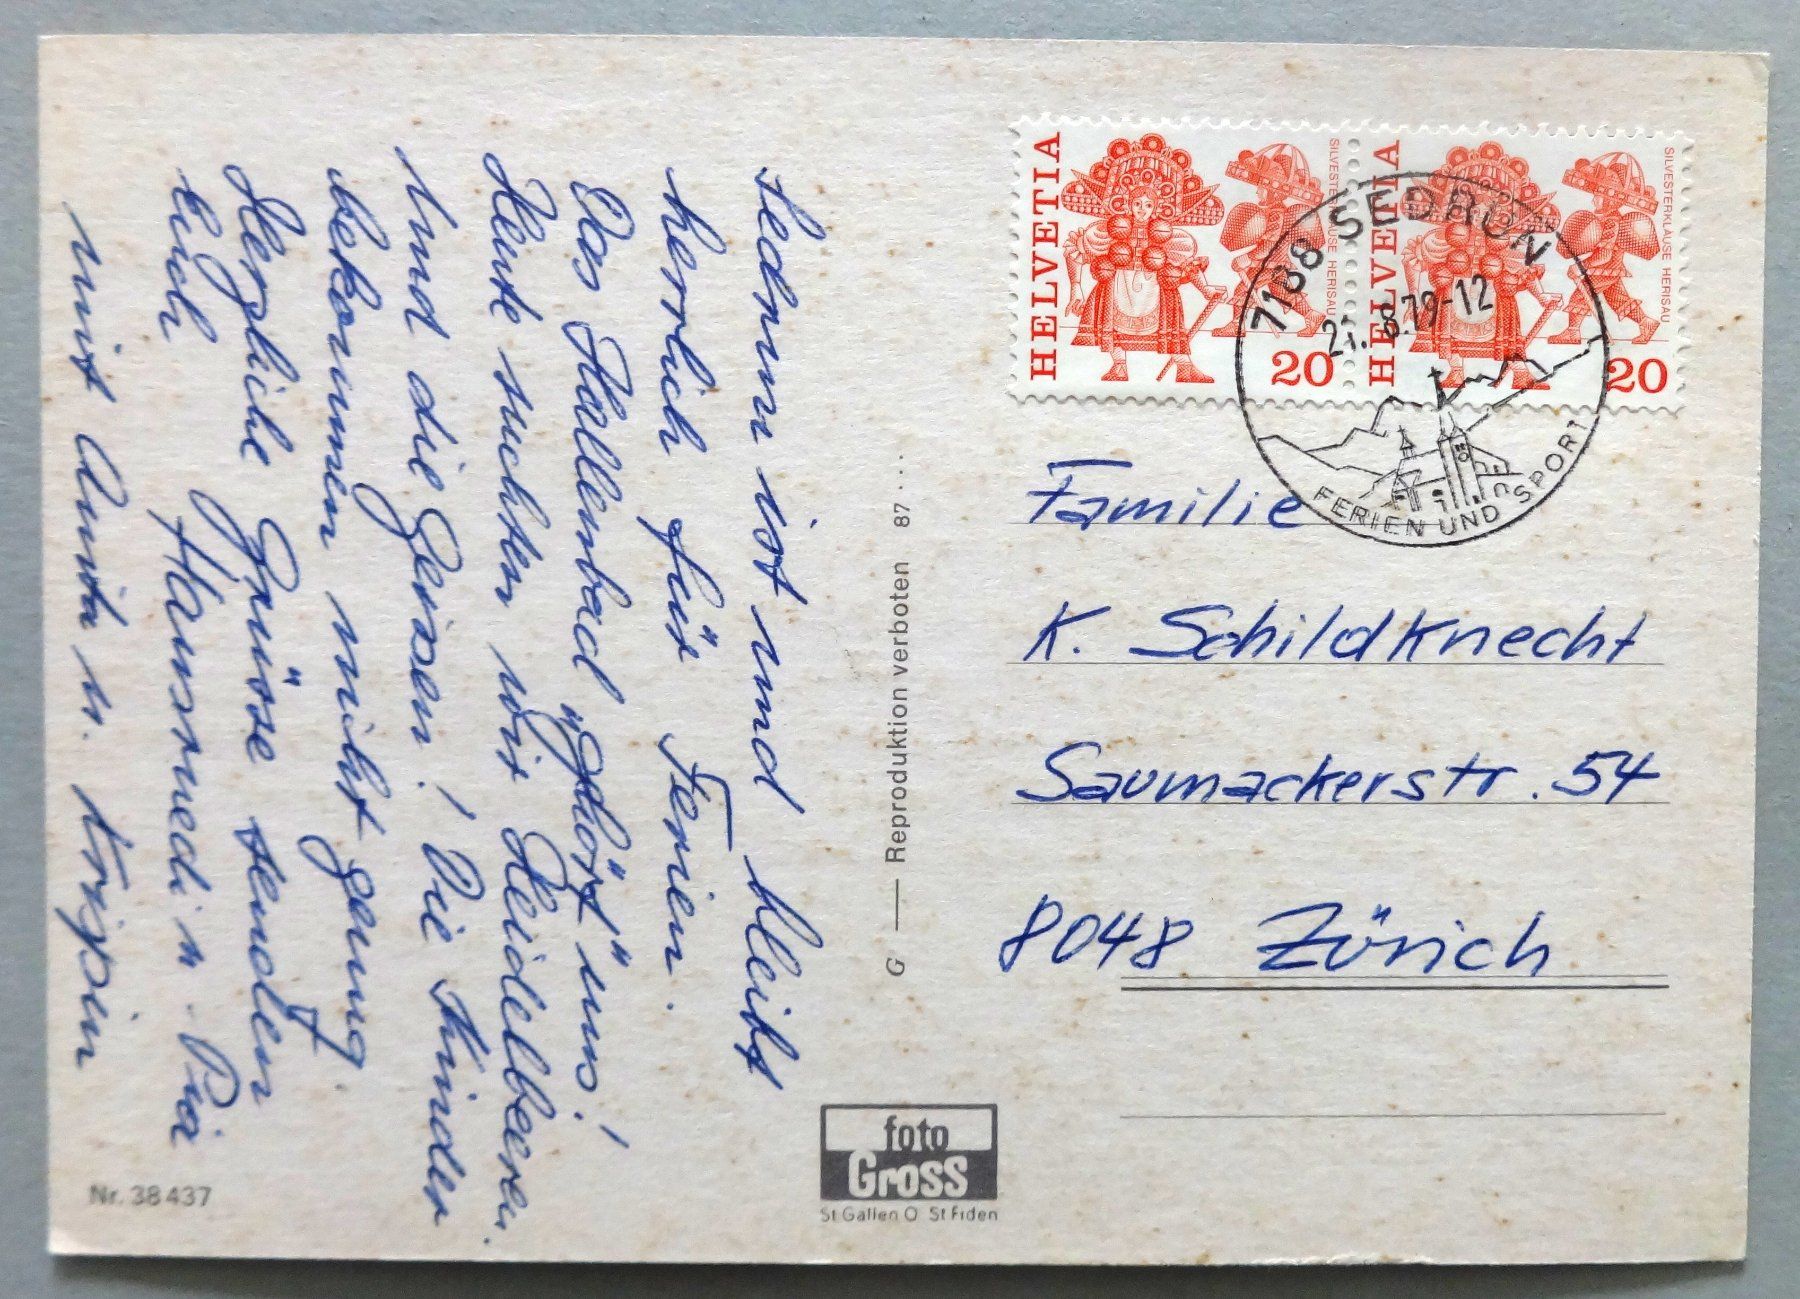 Sedrun ist und bleibt
herrlich für Ferien.
Das Hallenbad "ghört" uns!
Heute suchten wir Heidelbeeren
und die Geissen! Die Kinder
bekommen nicht genug.
Herzliche Grüsse senden
Euch Hansruedi u. Pia
mit Anita u. Krispin
Nr. 38437
G — Reproduktion verboten 87...
foto
Gross
St Gallen O St Fiden
HELVETIA
SILVESTERKLÄUSE HERISAU
20
HELVETIA
SILVESTERKLÄUSE HERISAU
20
7188 SEDRUN
21.8.79-12
FERIEN UND SPORT
Familie
K. Schildknecht
Saumackerstr. 54
8048 Zürich